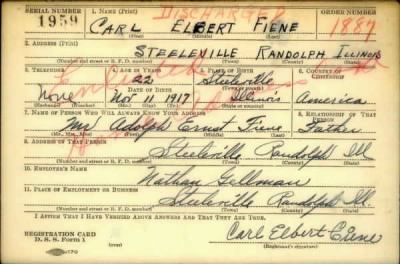 SERIAL NUMBER
1. NAME (Print)
DISCHARGED
ORDER NUMBER
1959
CARL ELBERT FIENE
1887
2. ADDRESS (Print)
STEELEVILLE RANDOLPH ILLINOIS
(Number and street or R. F. D. number) (Town) (County) (State)
3. TELEPHONE
4. AGE IN YEARS
5. PLACE OF BIRTH
6. COUNTRY OF
CITIZENSHIP
22
Steeleville
None
DATE OF BIRTH
(Town or county)
Nov 10 1917
Illinois
America
(Mo.) (Day) (Yr.)
(State or country)
7. NAME OF PERSON WHO WILL ALWAYS KNOW YOUR ADDRESS
8. RELATIONSHIP OF THAT
PERSON
Adolph Ernst Fiene Father
(Mr., Mrs., Miss) (First) (Middle) (Last)
9. ADDRESS OF THAT PERSON
Steeleville Randolph Ill
(Number and street or R. F. D. number) (Town) (County) (State)
10. EMPLOYER'S NAME
Nathan Gellman
11. PLACE OF EMPLOYMENT OR BUSINESS
Steeleville Randolph Ill.
(Number and street or R. F. D. number) (Town) (County) (State)
I AFFIRM THAT I HAVE VERIFIED ABOVE ANSWERS AND THAT THEY ARE TRUE.
REGISTRATION CARD
D. S. S. Form 1
Carl Elbert Fiene
(Registrant's signature)